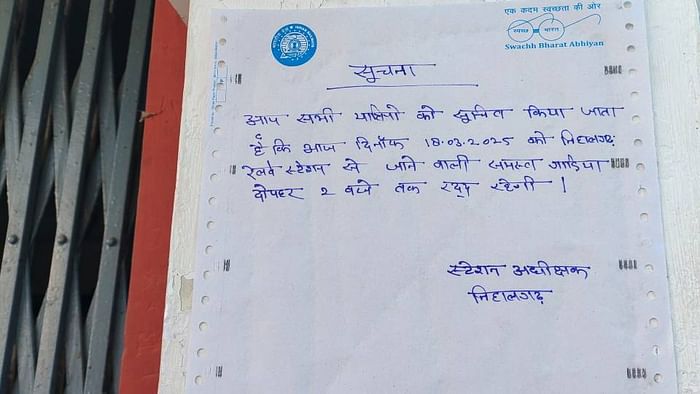 एक कदम स्वच्छता की ओर
स्वच्छ भारत
Swachh Bharat Abhiyan
सूचना
आप सभी यात्रियो को सूचित किया जाता
है कि आज दिनाँक 18.03.2025 को निहालगढ़
रेलवे स्टेशन से जाने वाली समस्त गाडिया
दोपहर 2 बजे तक रद्द रहेगी ।
स्टेशन अधीक्षक
निहालगढ़